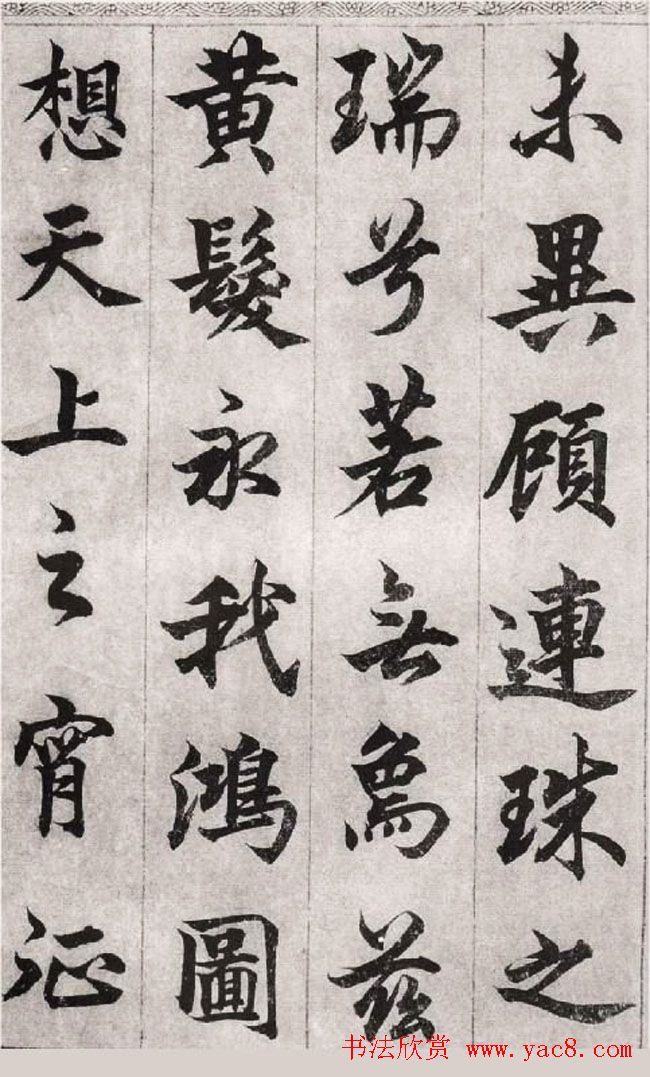 未異顧連珠之
瑞兮若無為兹
黃髮永我鴻圖
想天上之宵征
书法欣赏 www.yac8.com